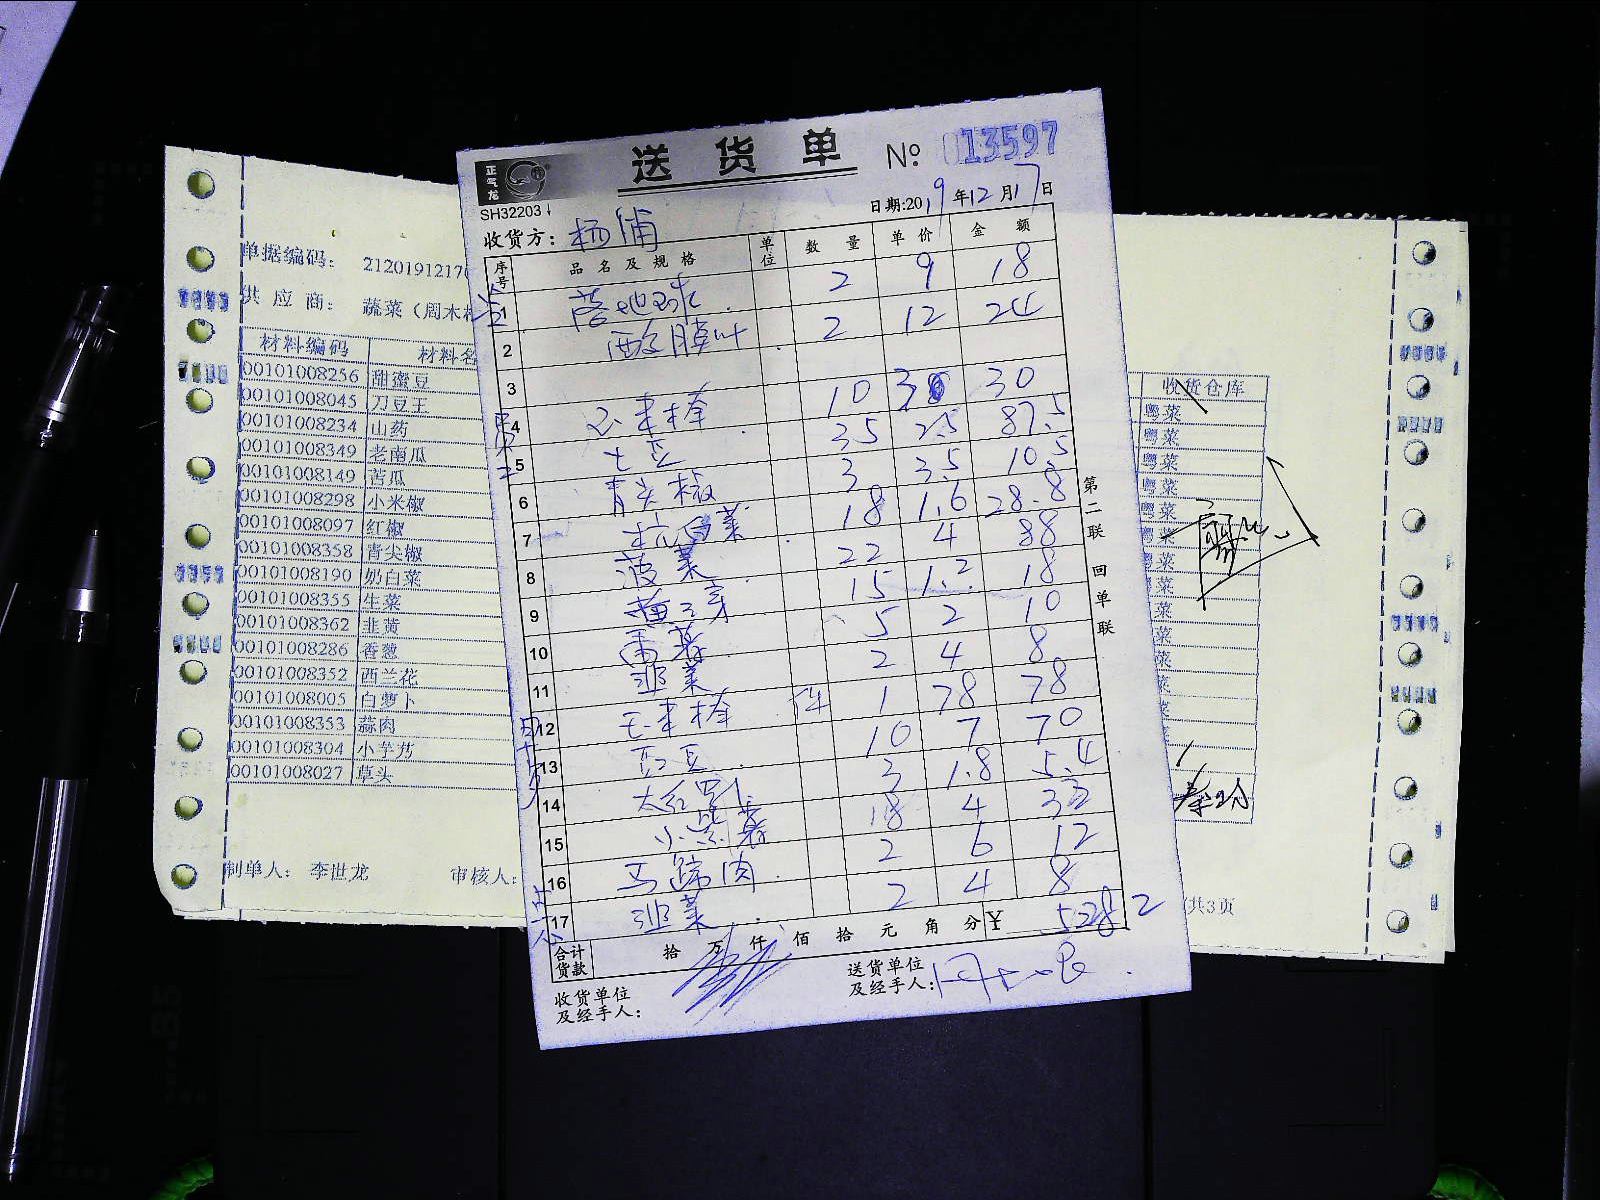 送货单 № 013597
正气龙
SH32203
日期:2019年12月17日
收货方: 杨浦
序号 品名及规格 单位 数量 单价 金额
1 2 9 18
2 酸膜叶 2 12 24
3
4 玉米棒 10 3 30
5 土豆 35 2.5 87.5
6 青尖椒 3 3.5 10.5
7 杭白菜 18 1.6 28.8
8 菠菜 22 4 88
9 黄豆芽 15 1.2 18
10 5 2 10
11 韭菜 2 4 8
12 玉米棒 件 1 78 78
13 豇豆 10 7 70
14 3 1.8 5.4
15 18 4 33
16 马蹄肉 2 6 12
17 韭菜 2 4 8
合计货款 拾 万 仟 佰 拾 元 角 分 ¥ 528 2
收货单位及经手人:
送货单位及经手人:
第二联 回单联
单据编码: 21201912170
供应商: 蔬菜（周木
材料编码 材料名
00101008256 甜蜜豆
00101008045 刀豆王
00101008234 山药
00101008349 老南瓜
00101008149 苦瓜
00101008298 小米椒
00101008097 红椒
00101008358 青尖椒
00101008190 奶白菜
00101008355 生菜
00101008362 韭黄
00101008286 香葱
00101008352 西兰花
00101008005 白萝卜
00101008353 蒜肉
00101008304 小芋艿
00101008027 草头
制单人: 李世龙 审核人:
收货仓库
粤菜
粤菜
粤菜
粤菜
粤菜
粤菜
粤菜
粤菜
菜
菜
菜
菜
/共3页